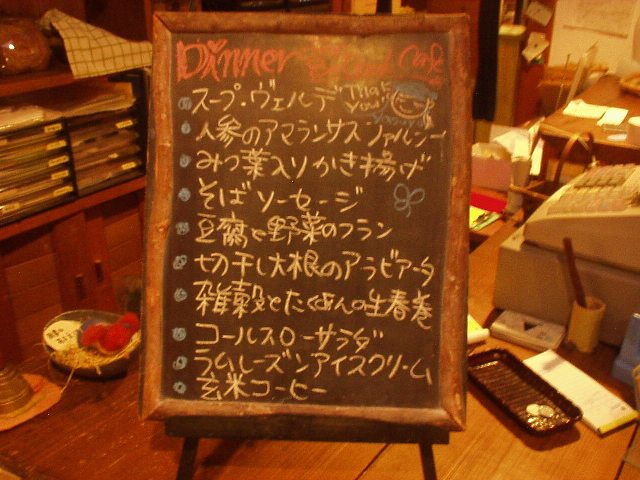 Dinner
Thank
You!
スープ・ヴェルデ
人参のアマランサスファルシー
みつ葉入りかき揚げ
そばソーセージ
豆腐と野菜のフラン
切干し大根のアラビアータ
雑穀とたくあんの生春巻
コールスローサラダ
ラムレーズンアイスクリーム
玄米コーヒー